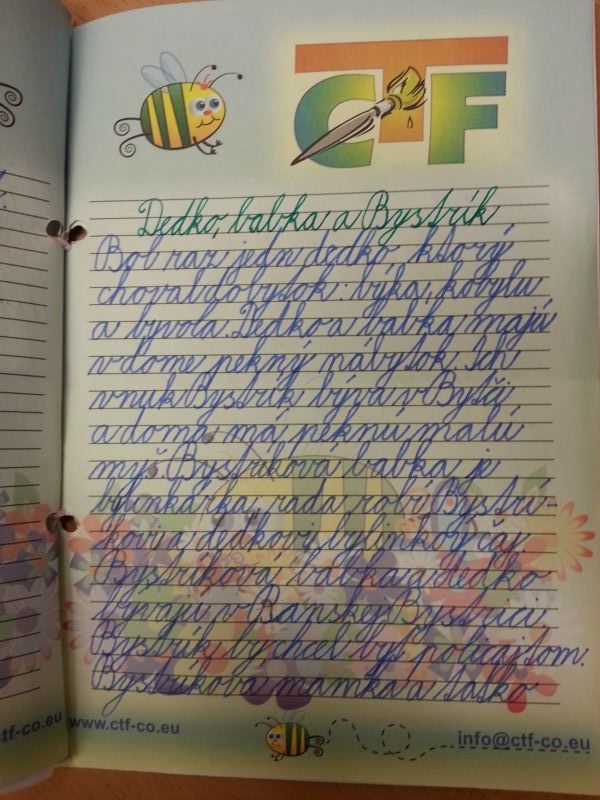 CTF
Dedko, babka a Bystrík
Bob raz jedn dedko, ktorý
choval dobytok: býka, kobylu
a byvola. Dedko a babka majú
v dome pekný nábytok. Ich
vnuk Bystrík býva v Bytči
a doma má peknú malú
myš. Bystríková babka je
bylinkárka, rada robí Bystrí-
kovi a dedkovi bylinkový čaj.
Bystríková babka a dedko
bývajú v Banskej Bystrici.
Bystrík, by chcel byť policajtom.
Bystríková mamka a tatko
tf-co.eu
www.ctf-co.eu
info@ctf-co.eu